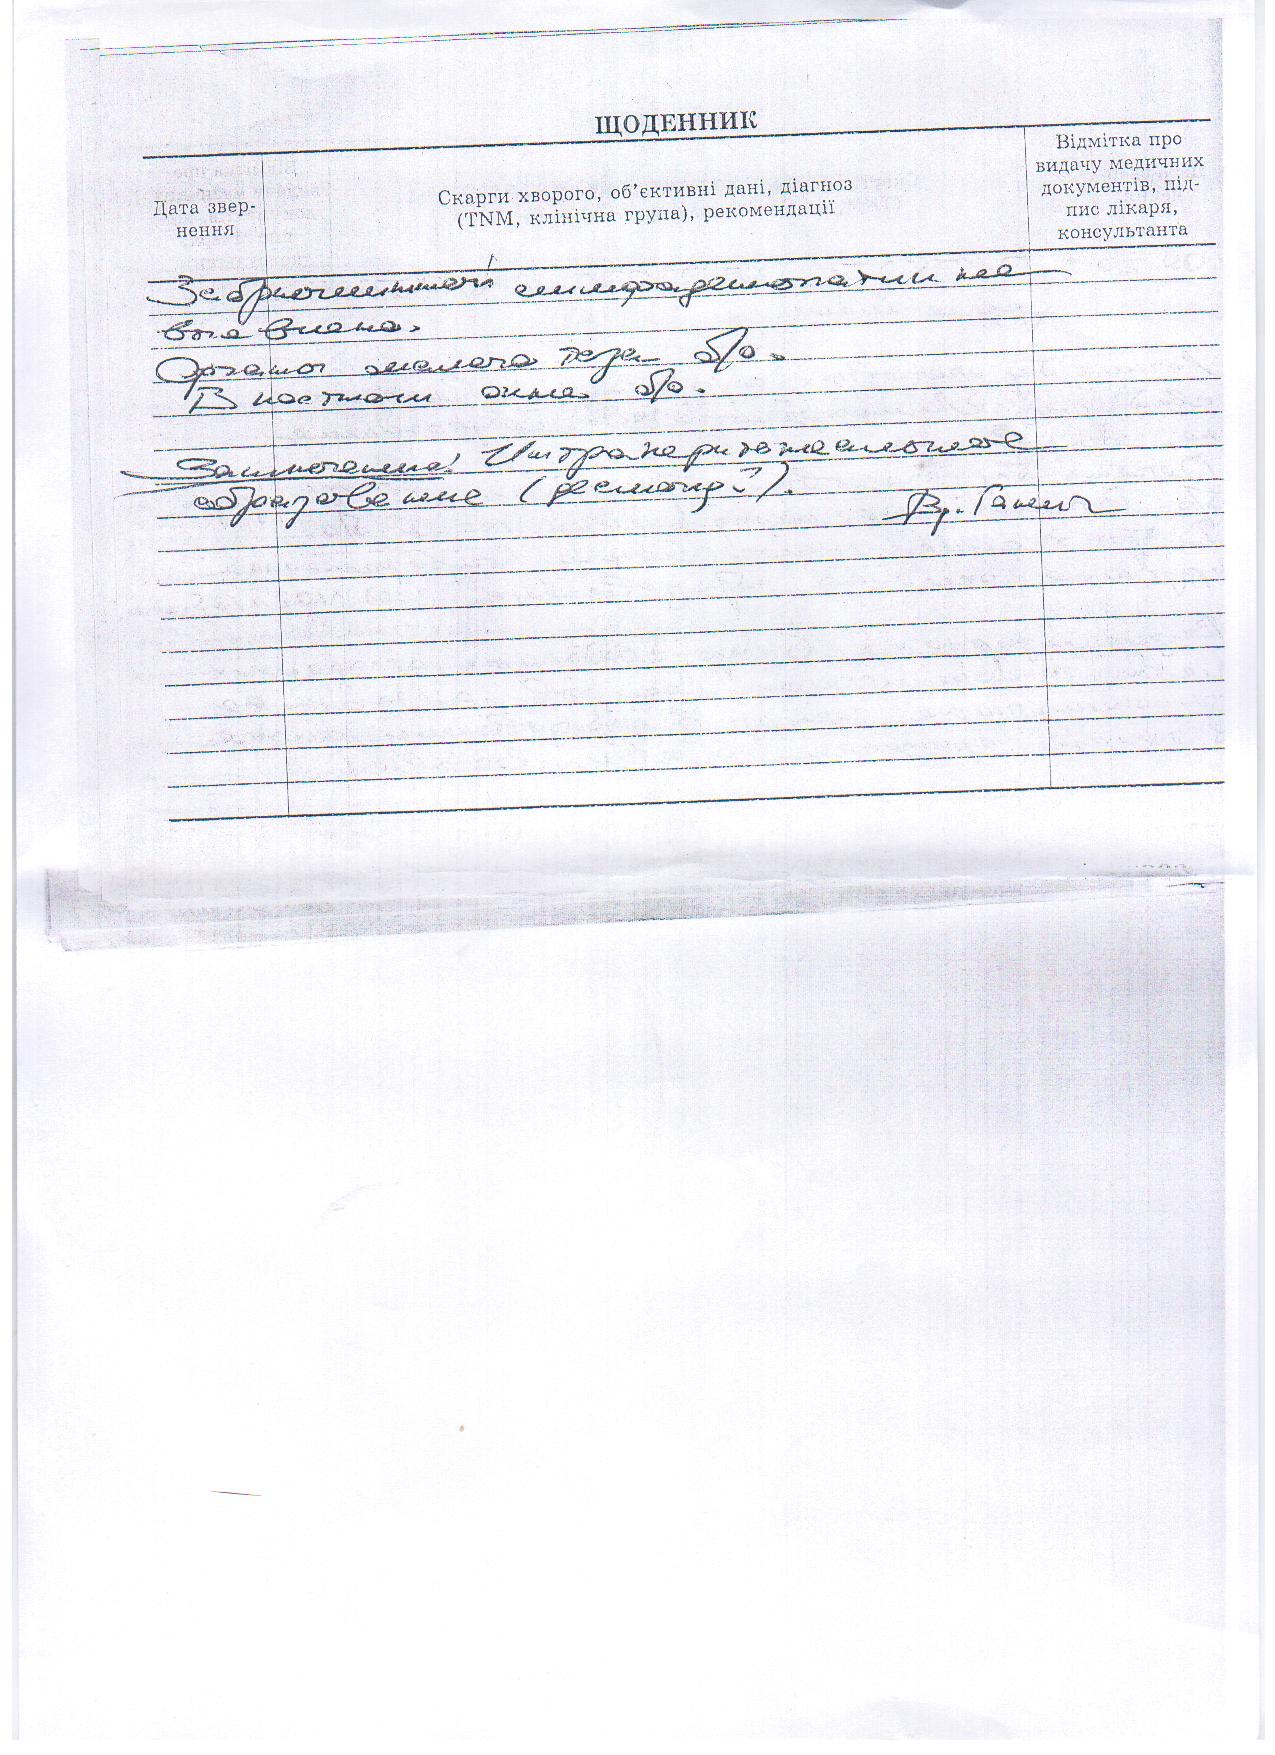 ЩОДЕННИК
Дата звер-
нення
Скарги хворого, об’єктивні дані, діагноз
(TNM, клінічна група), рекомендації
Відмітка про
видачу медичних
документів, під-
пис лікаря,
консультанта
Забрюшинной лимфаденопатии не
выявлено.
Органы малого таза б/о.
В костном окне б/о.
Заключение: Интраперитонеальное
образование (десмоид?).
Вр.